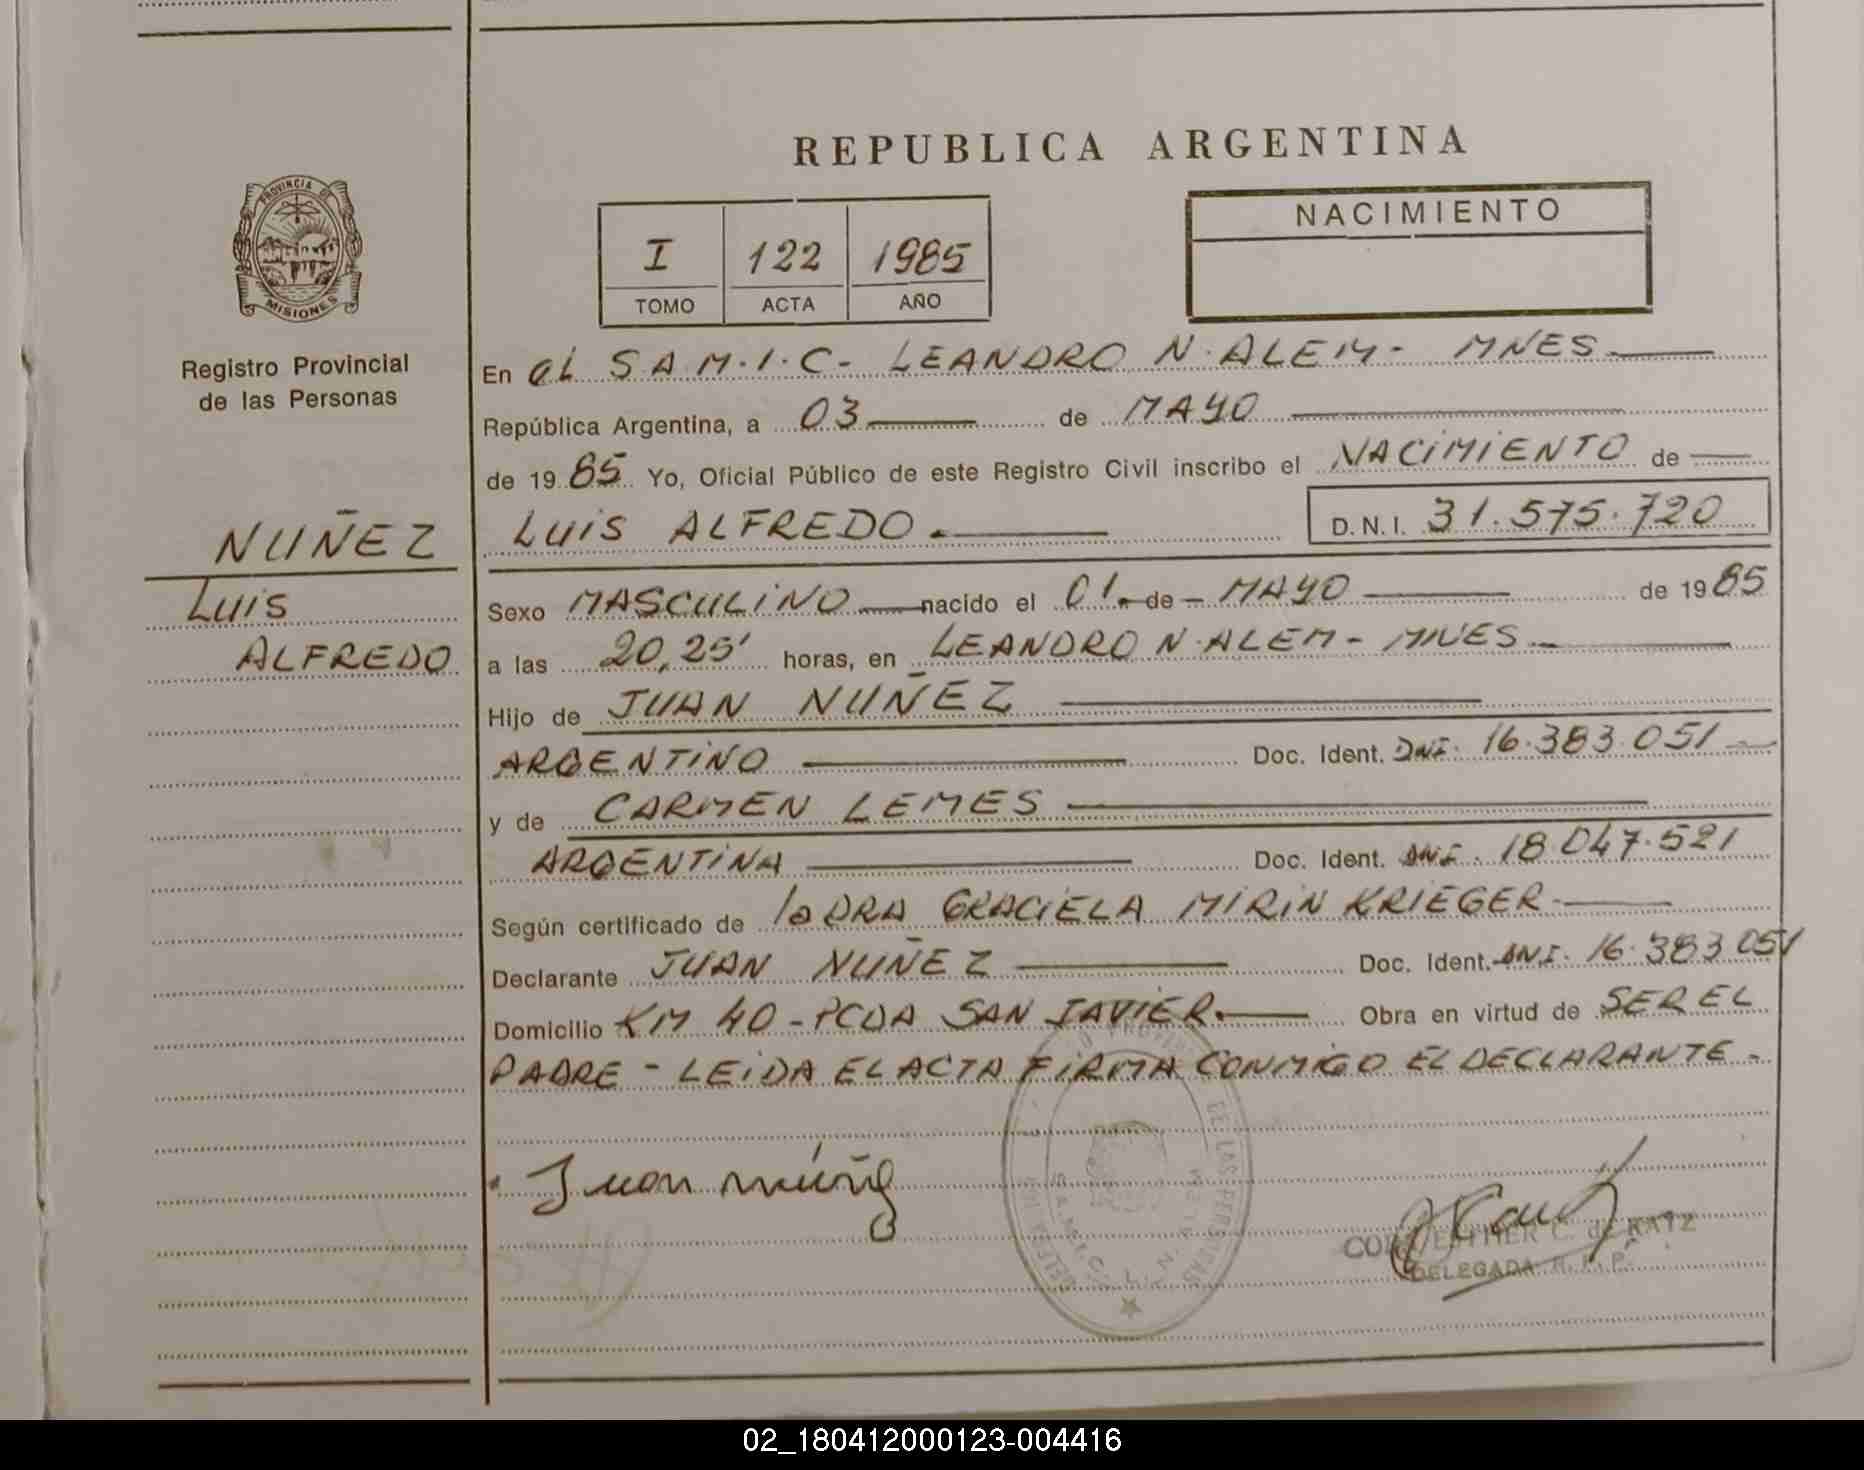 REPUBLICA ARGENTINA
PROVINCIA DE
MISIONES
Registro Provincial
de las Personas
I 122 1985
TOMO ACTA AÑO
NACIMIENTO
En el S.A.M.I.C- LEANDRO N. ALEM- MNES
República Argentina, a 03 de MAYO
de 1985 Yo, Oficial Público de este Registro Civil inscribo el NACIMIENTO de
LUIS ALFREDO. D.N.I. 31.575.720
NUÑEZ
LUIS
ALFREDO
Sexo MASCULINO nacido el 01 de MAYO de 1985
a las 20,25' horas, en LEANDRO N. ALEM- MNES
Hijo de JUAN NUÑEZ
ARGENTINO Doc. Ident. DNI. 16.383.051
y de CARMEN LEMES
ARGENTINA Doc. Ident. DNI. 18.047.521
Según certificado de la DRA GRACIELA MIRIN KRIEGER
Declarante JUAN NUÑEZ Doc. Ident. DNI. 16.383.051
Domicilio KM 40 - PCDA SAN JAVIER. Obra en virtud de SER EL
PADRE - LEIDA EL ACTA FIRMA CONMIGO EL DECLARANTE -
Juan
DE LAS PERSONAS
ESTHER C. de KATZ
DELEGADA R. P. P.
02_180412000123-004416